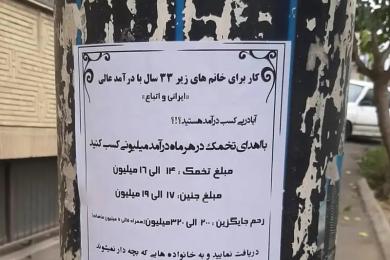 کار برای خانم های زیر ۳۳ سال با درآمد عالی
«ایرانی و اتباع»
آیا در پی کسب درآمد هستید؟!؟
با اهدای تخمک در هر ماه درآمد میلیونی کسب کنید
مبلغ تخمک : ۱۴ الی ۱۶ میلیون
مبلغ جنین: ۱۷ الی ۱۹ میلیون
رحم جایگزین : ۲۰۰ الی ۳۲۰ میلیون
دریافت نمایید و به خانواده هایی که بچه دار نمیشوند